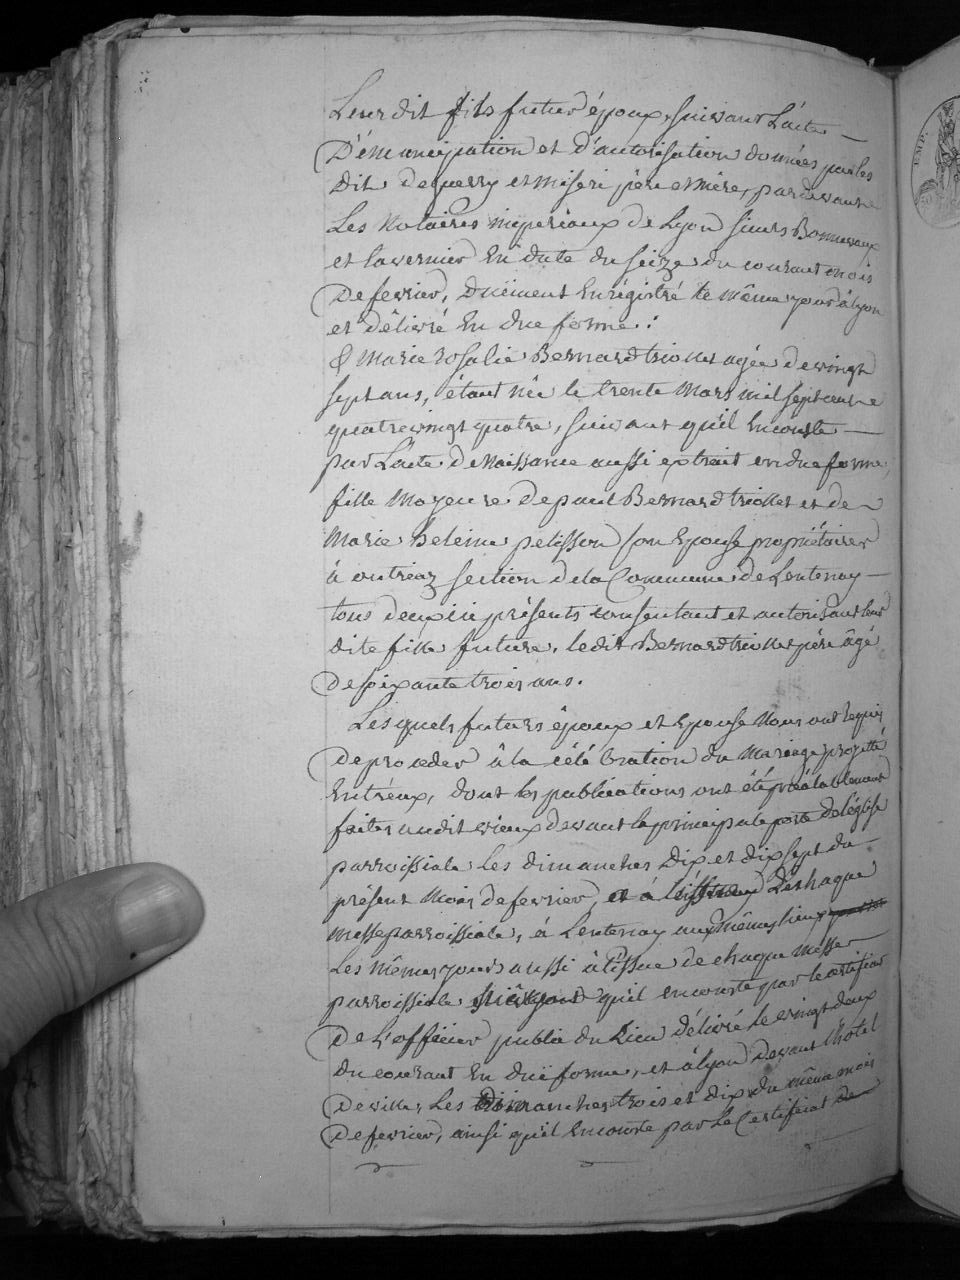 Leur dit fils futur époux, suivant L'acte
D'émancipation et d'autorisation données par les
dit deguerry et miseri père et mère, pardevant
Les Notaires impériaux de Lyon sieurs Bonnevaux
et lavernier En date du seize du courant mois
De fevrier, duëment Enrégistré le même jour à lyon
et délivré En due forme :
& Marie Rosalie Bernard triollet agée de vingt
sept ans, étant née le trente Mars mil sept cent
quatrevingt quatre, suivant qu'il En conste
par L'acte de Naissance aussi extrait en due forme,
fille Majeure de paul Bernard triollet et de
Marie heleine pelisson son Epouse propriétaires
à outriaz section dela Commune de Lentenay
tous deux ici présents consentant et autorisant leur
dite fille future, ledit Bernard triollet père âgé
de soixante trois ans.
Lesquels futurs époux et Epouse Nous ont Requis
De proceder à la célébration du Mariage projetté
Entr'eux, dont les publications ont été préalablement
faites audit vieux devant la principale porte de l'église
parroissiale Les dimanches Dix et dix sept du
présent Mois de fevrier, et à l'issue De chaque
messe parroissiale, à Lentenay aux mêmes lieux
Les mêmes jours aussi à l'issue de chaque messe
parroissiale qu'il en conste par le certificat
De L'officier public du Lieu délivré le vingt deux
du courant En duë forme, et à lyon devant l'hotel
De ville, Les dimanches trois et dix du même mois
De fevrier, ainsi qu'il En conste par Le Certificat de